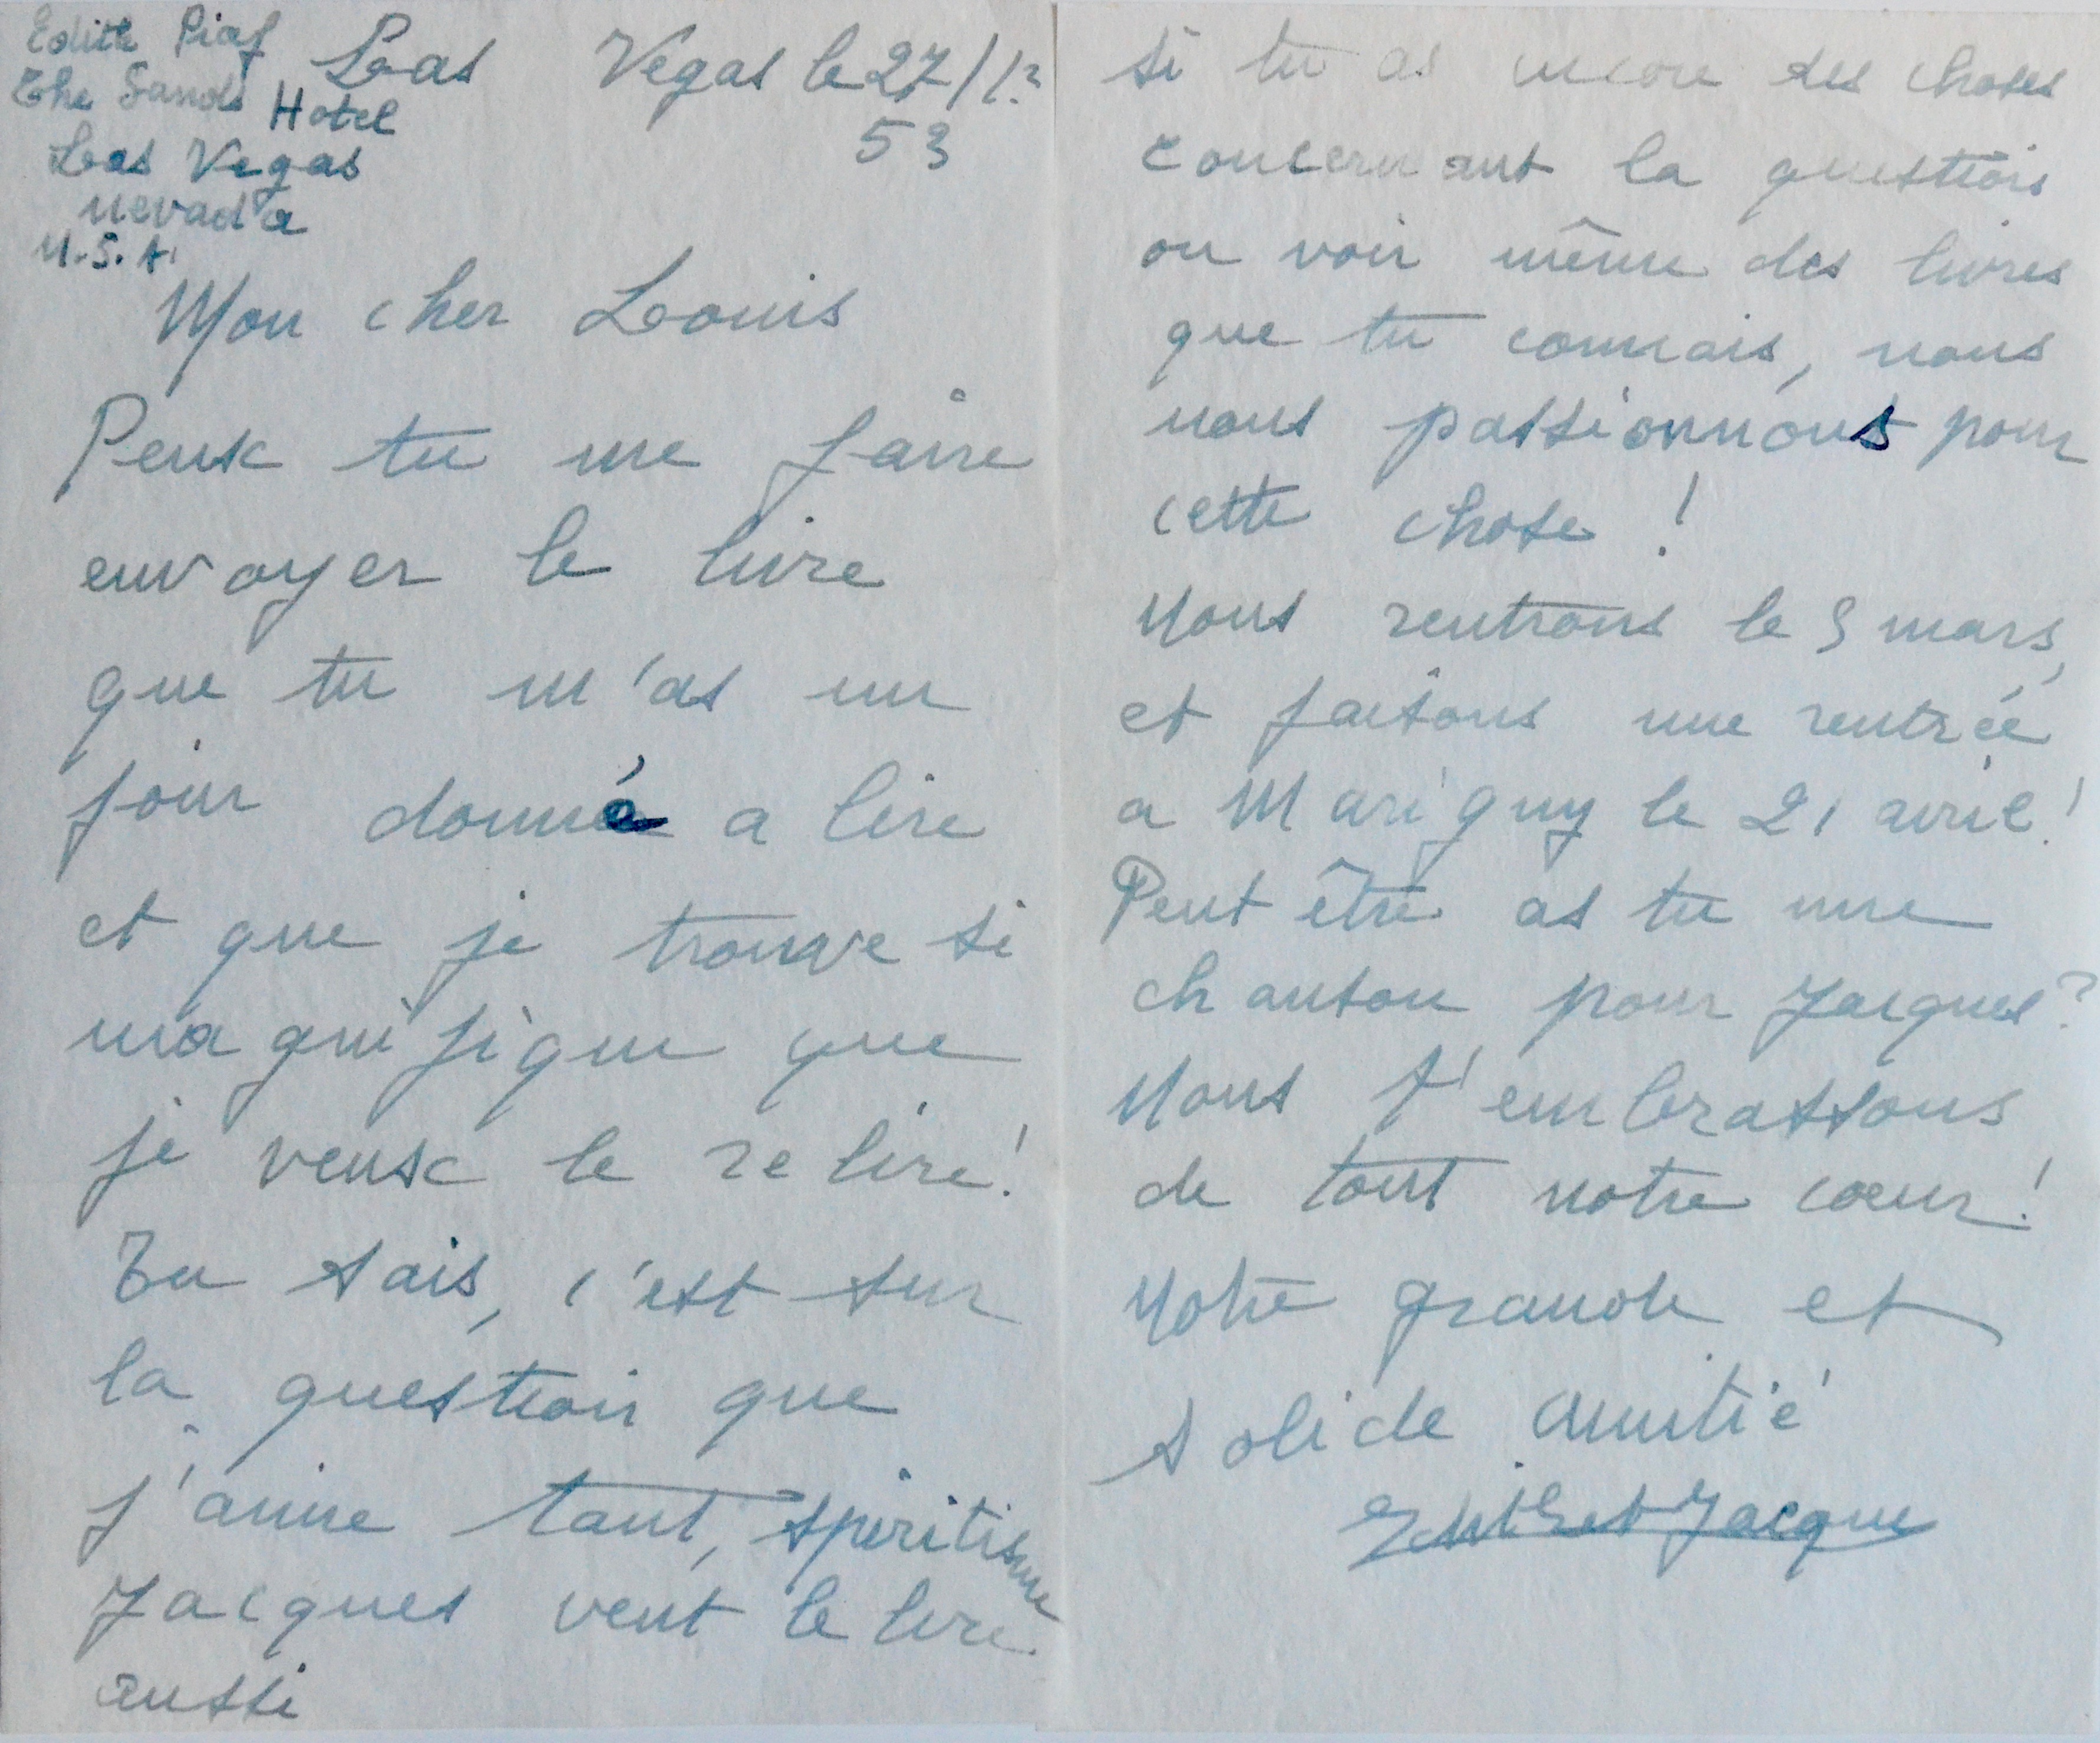 Edith Piaf
The Sands Hotel
Las Vegas
Nevada
U.S.A.
Las Vegas le 27/1
53
Mon cher Louis
Peux tu me faire
envoyer le livre
que tu m'as un
jour donné a lire
et que je trouve si
magnifique que
je veux le relire!
Tu sais, c'est sur
la question que
j'aime tant, spiritisme
Jacques veut le lire
aussi
si tu as encore des choses
concernant la question
ou voir même des livres
que tu connais, nous
nous passionnons pour
cette chose!
Nous rentrons le mars,
et faisons une rentrée
a Marigny le 21 avril!
Peut être as tu une
chanson pour Jacques?
Nous t'embrassons
de tout notre coeur!
Notre grande et
solide amitié
Edith et Jacques